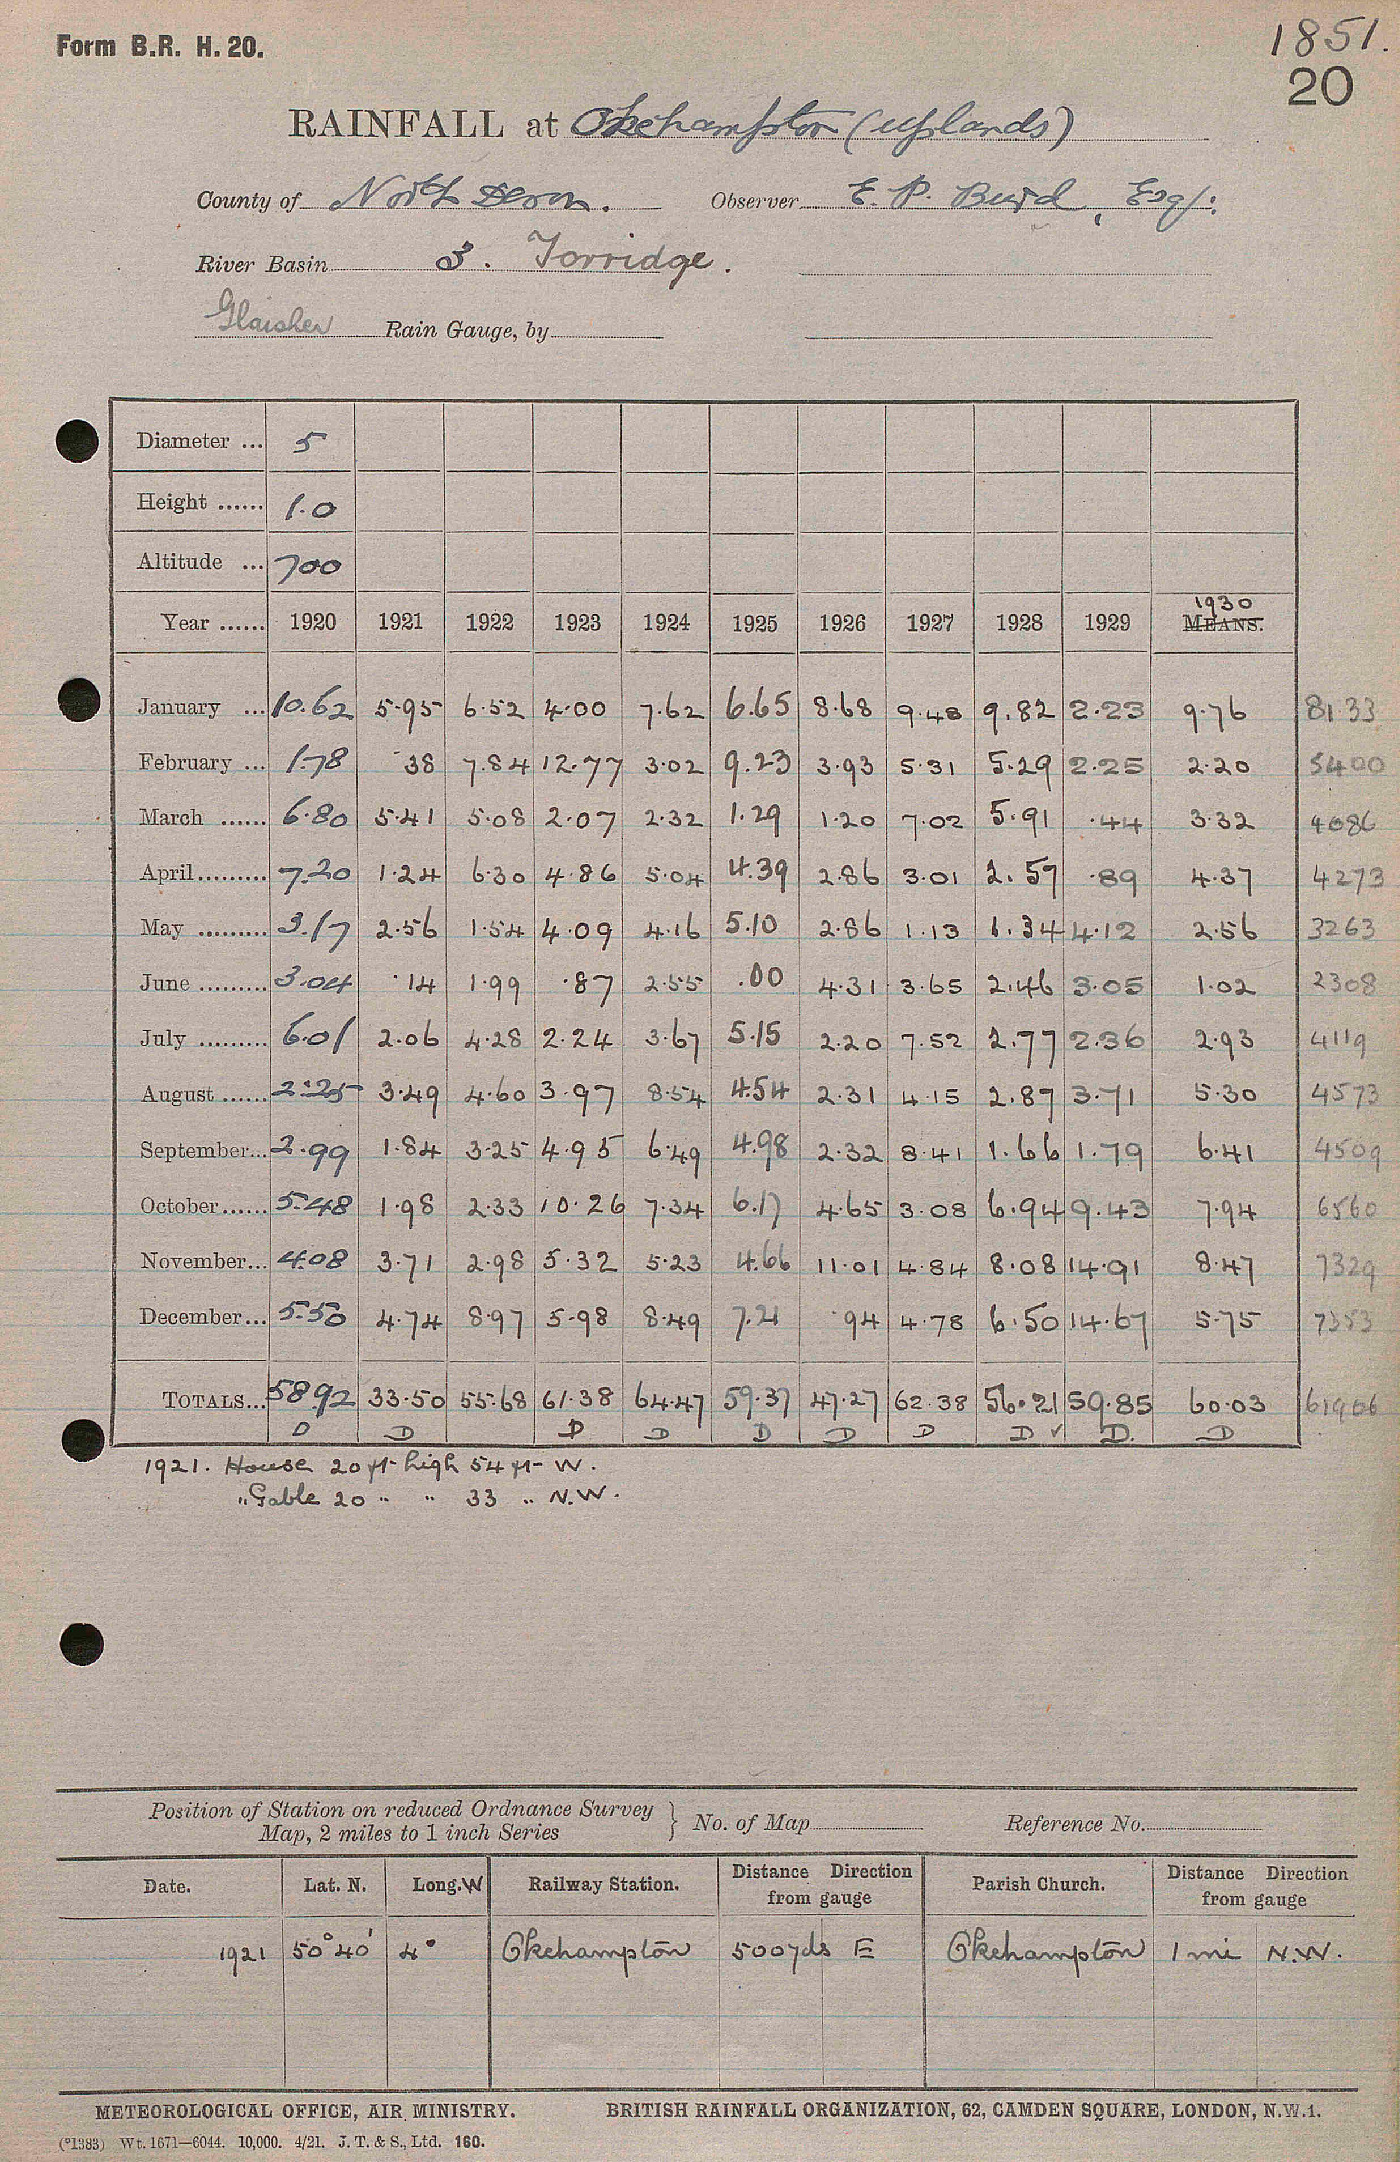 Form B.R. H. 20.
1851.
20
RAINFALL at Okehampton (Uplands)
County of North Devon. Observer E. P. Burd, Esq.
River Basin 3. Torridge.
Glaisher Rain Gauge, by
Diameter ... 5
Height ...... 1.0
Altitude ... 700
1930
Year ...... 1920 1921 1922 1923 1924 1925 1926 1927 1928 1929 MEANS.
January ... 10.62 5.95 6.52 4.00 7.62 6.65 8.68 9.48 9.82 2.23 9.76 81.33
February ... 1.78 .38 7.84 12.77 3.02 9.23 3.93 5.31 5.29 2.25 2.20 5400
March ...... 6.80 5.41 5.08 2.07 2.32 1.29 1.20 7.02 5.91 .44 3.32 4086
April......... 7.20 1.24 6.30 4.86 5.04 4.39 2.86 3.01 2.57 .89 4.37 4273
May ......... 3.17 2.56 1.54 4.09 4.16 5.10 2.86 1.13 1.34 4.12 2.56 3263
June ......... 3.04 .14 1.99 .87 2.55 .00 4.31 3.65 2.46 3.05 1.02 2308
July ......... 6.01 2.06 4.28 2.24 3.67 5.15 2.20 7.52 2.77 2.36 2.93 4119
August ...... 2.25 3.49 4.60 3.97 8.54 4.54 2.31 4.15 2.87 3.71 5.30 4573
September... 2.99 1.84 3.25 4.95 6.49 4.98 2.32 8.41 1.66 1.79 6.41 4509
October...... 5.48 1.98 2.33 10.26 7.34 6.17 4.65 3.08 6.94 9.43 7.94 6560
November... 4.08 3.71 2.98 5.32 5.23 4.66 11.01 4.84 8.08 14.91 8.47 7329
December... 5.50 4.74 8.97 5.98 8.49 7.21 .94 4.78 6.50 14.67 5.75 7353
TOTALS... 58.92 33.50 55.68 61.38 64.47 59.37 47.27 62.38 56.21 59.85 60.03 61906
D D D D D D D D ✓ D. D
1921. House 20 ft high 54 ft W.
" Gable 20 " " 33 " N.W.
Position of Station on reduced Ordnance Survey
Map, 2 miles to 1 inch Series } No. of Map Reference No.
Date. Lat. N. Long. W Railway Station. Distance Direction from gauge Parish Church. Distance Direction from gauge
1921 50° 40' 4° Okehampton 500yds E Okehampton 1 mi N.W.
METEOROLOGICAL OFFICE, AIR MINISTRY. BRITISH RAINFALL ORGANIZATION, 62, CAMDEN SQUARE, LONDON, N.W.1.
(*1383) Wt. 1671—6044. 10,000. 4/21. J. T. & S., Ltd. 160.